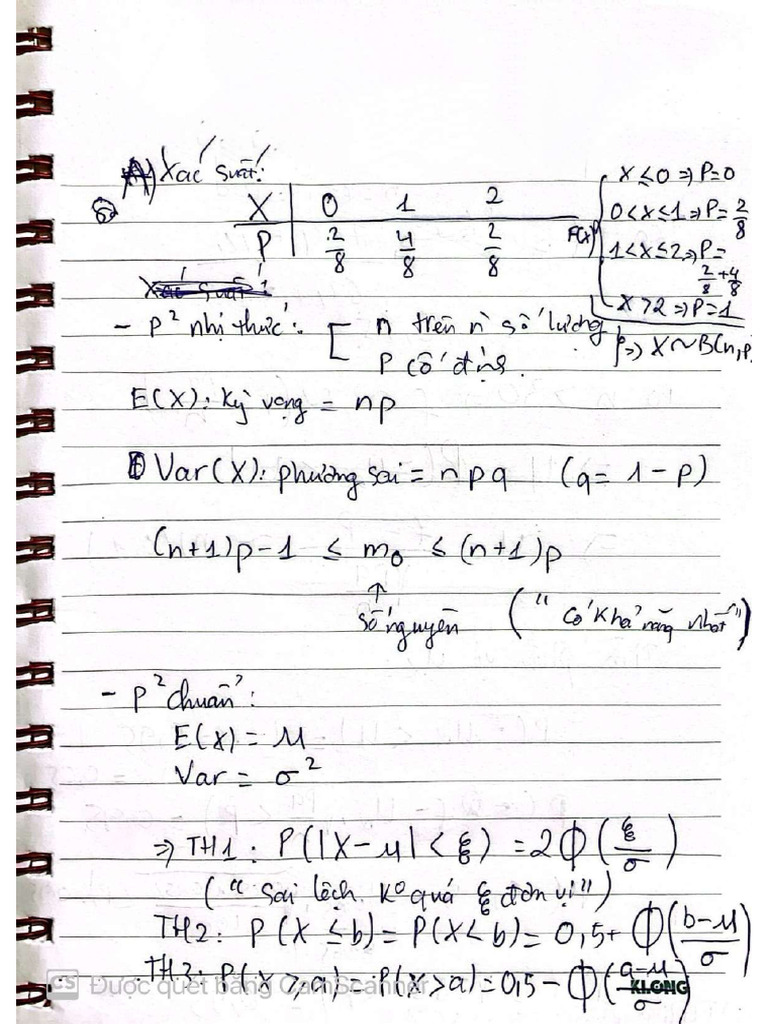 Xác suất:
X | 0 1 2
P | 2/8 4/8 2/8
F(x) { X ≤ 0 ⇒ P=0
0<X≤1 ⇒ P= 2/8
1<X≤2 ⇒ P= 2/8 + 4/8
X>2 ⇒ P=1
- P² nhị thức: [ n trên n số lượng
P cố định. } ⇒ X ~ B(n,p
E(X): kỳ vọng = np
Var(X): phương sai = npq (q= 1-p)
(n+1)p-1 ≤ m₀ ≤ (n+1)p
↑
số nguyên ("có khả năng nhất")
- P² chuẩn:
E(X) = μ
Var = σ²
⇒ TH1: P(|X-μ| < ξ) = 2Φ(ξ/σ)
("Sai lệch k⁰ quá ξ đơn vị")
TH2: P(X ≤ b) = P(X< b) = 0,5+ Φ((b-μ)/σ)
TH3: P(X ≥ a) = P(X>a) = 0,5 - Φ((a-μ)/σ)
CS Được quét bằng CamScanner
KLONG